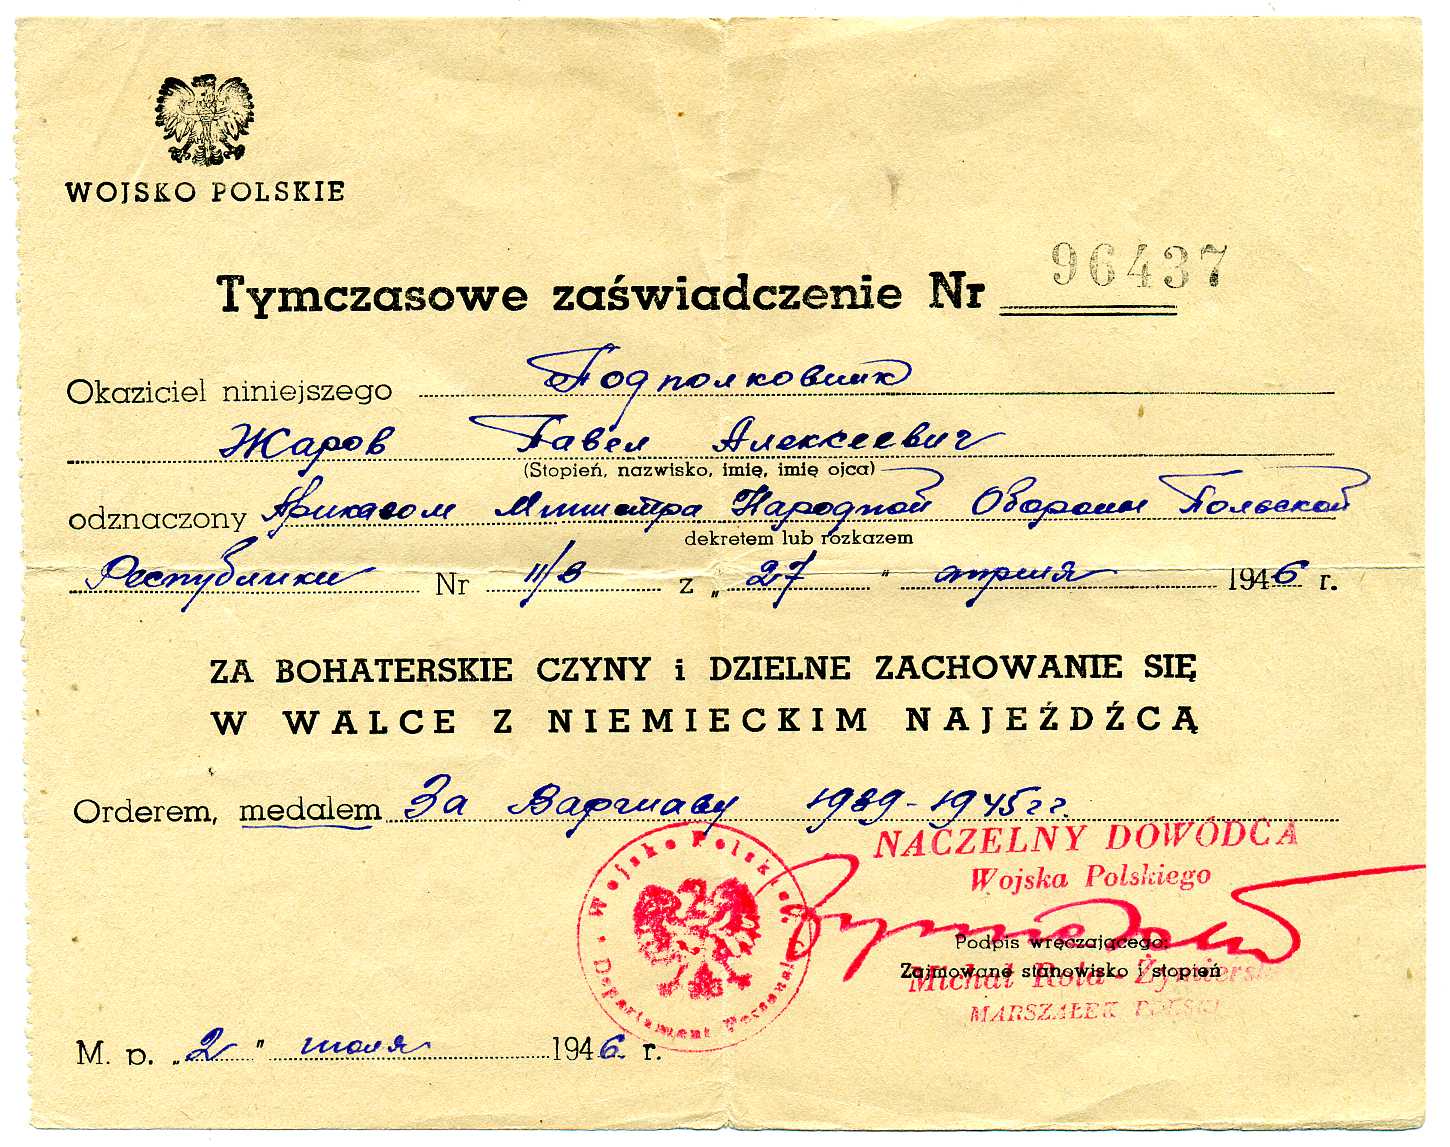 WOJSKO POLSKIE
Tymczasowe zaświadczenie Nr 96437
Okaziciel niniejszego Подполковник
Жаров Павел Алексеевич
(Stopień, nazwisko, imię, imię ojca)
odznaczony Приказом Министра Народной Обороны Польской
dekretem lub rozkazem
Республики Nr 11/8 z „ 27 " апреля 1946 r.
ZA BOHATERSKIE CZYNY i DZIELNE ZACHOWANIE SIĘ
W WALCE Z NIEMIECKIM NAJEŹDŹCĄ
Orderem, medalem За Варшаву 1939-1945 гг.
NACZELNY DOWÓDCA
Wojska Polskiego
Wojsko Polskie
Departament Personalny
Podpis wręczającego:
Zajmowane stanowisko i stopień
Michał Rola-Żymierski
MARSZAŁEK POLSKI
M. p. „ 2 " июля 1946 r.